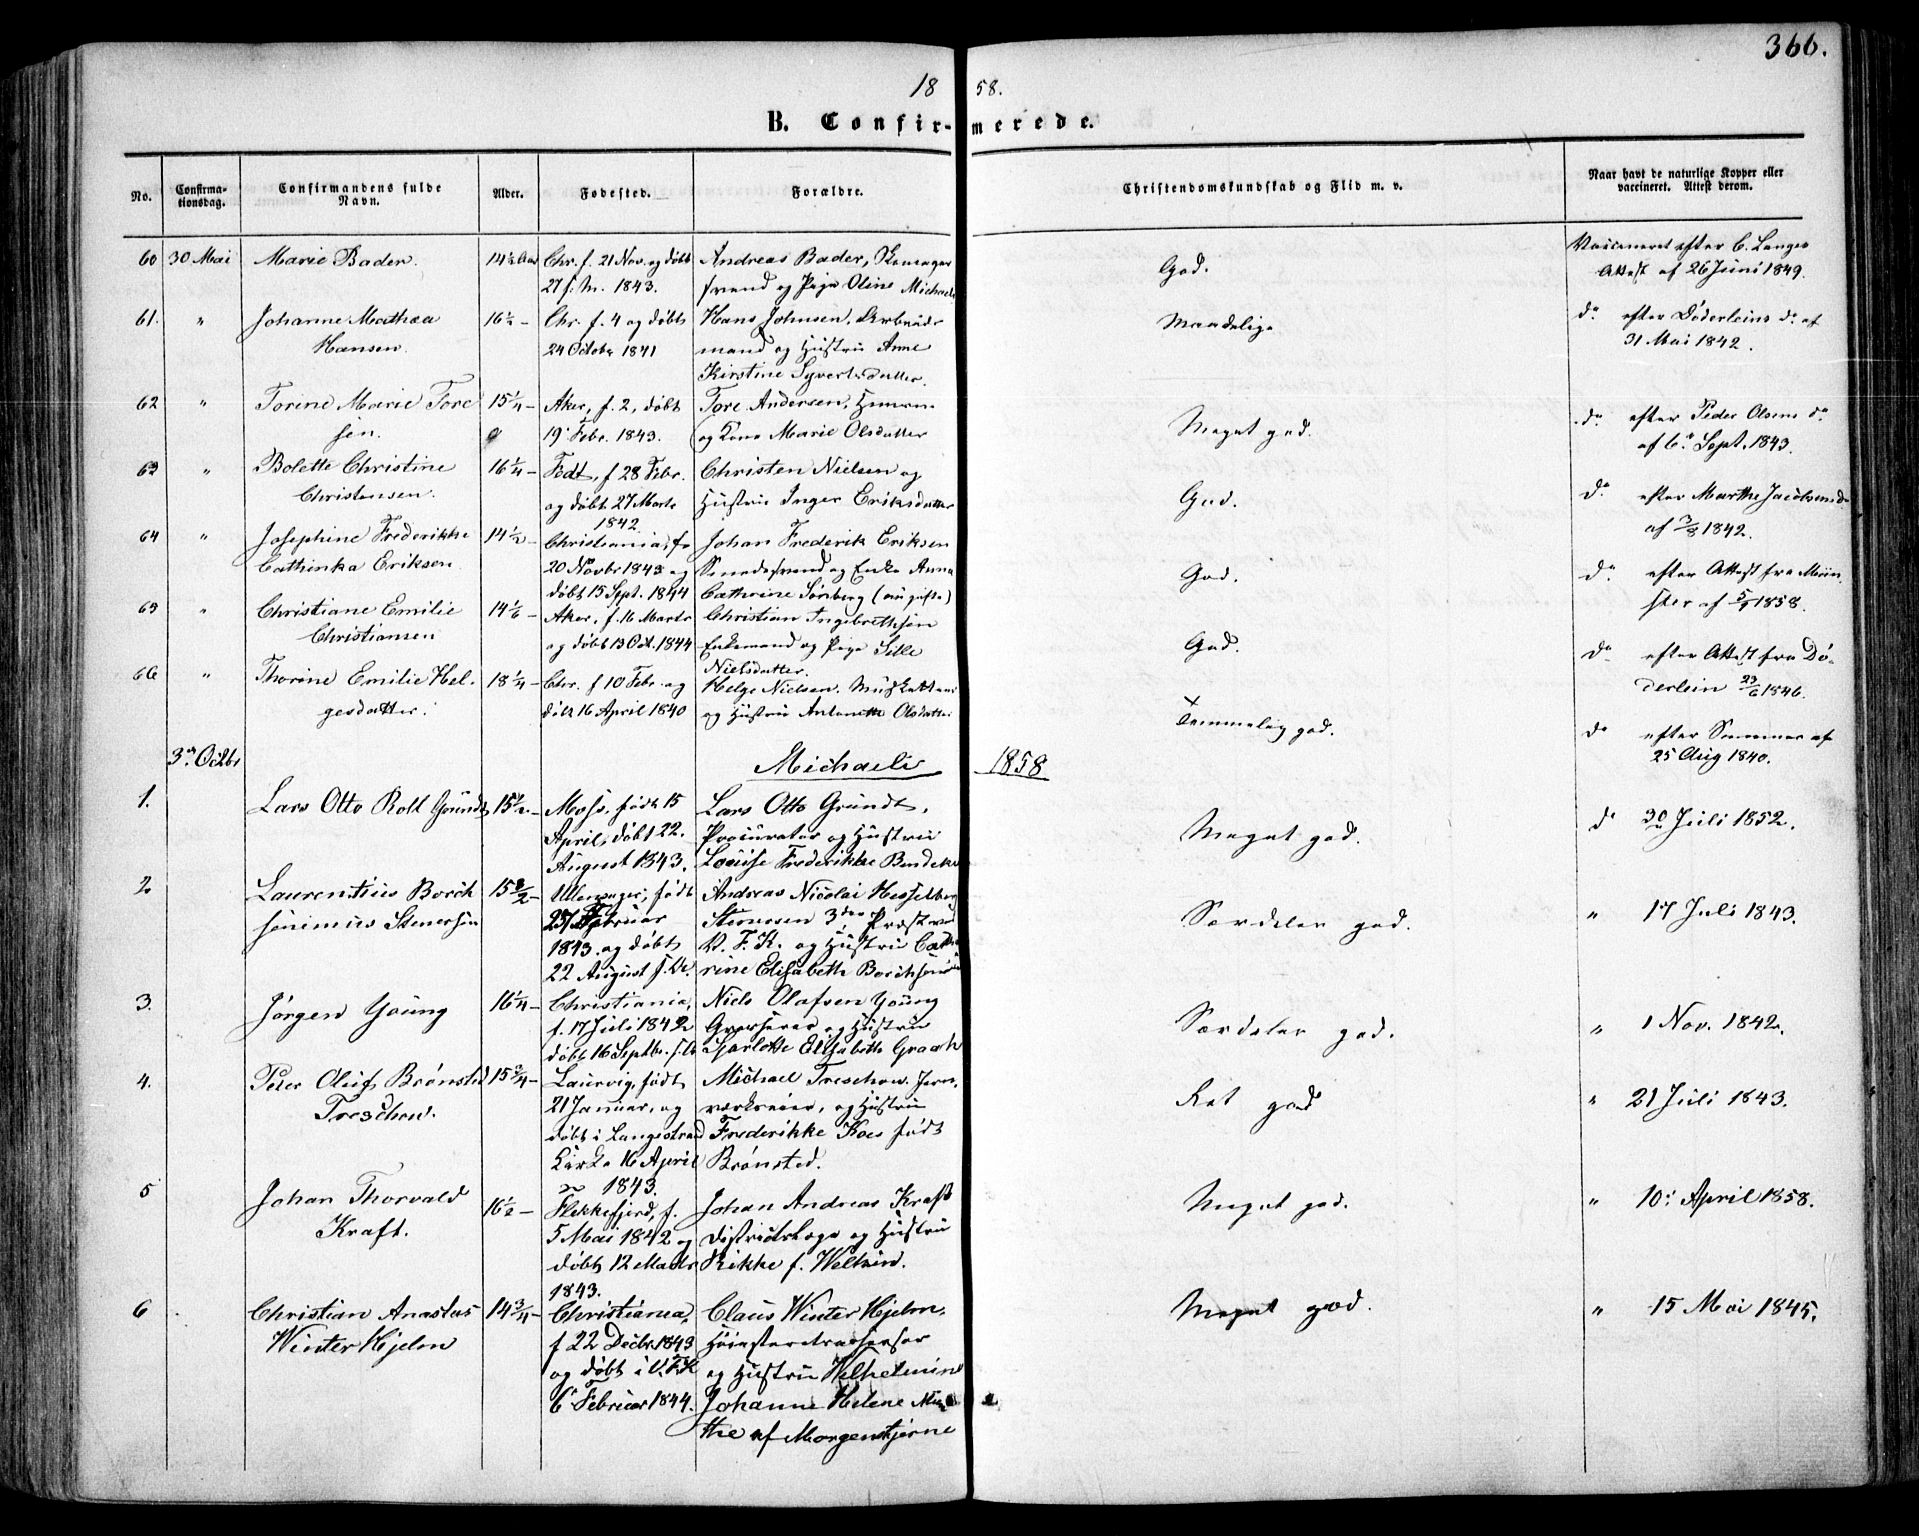 366.
18 58.
B. Confirmerede.
No.
Confirma-
tionsdag.
Confirmandens fulde
Navn.
Alder.
Fødested.
Forældre.
Christendomskundskab og Flid m. v.
Naar havt de naturlige Kopper eller
vaccineret. Attest derom.
60 30 Mai Marie Bader. 14½ Aar Chr. f. 21 Nov. og døbt Andreas Bader,
27 s. M. 1843. svend og Pige Oline Michaels
God.
Vaccineret efter C. Langes
Attest af 26 Juni 1849.
61. " Johanne Mathea 16½ – Chr. f. 4 og døbt Hans Johnsen, Arbeids
Hansen. 24 Octobr 1841 mand og Hustru Anne
Kirstine Syvertsdatter.
Maadelig
do efter Døderleins do af
31 Mai 1842.
62 " Torine Marie Tore 15¼ – Aker, f. 2, døbt Tore Andersen,
sen. 19 Febr. 1843. og Kone Marie Olsdatter
Meget god.
do efter Peder Olsens do
af 6 Sept. 1843.
63 " Bolette Christine 16¼ – Fedt, f 28 Febr. Christen Nielsen og
Christensen. og døbt 27 Marts Hustru Inger Eriksdatter
1842
God.
do efter Marthe Jacobsens do
af 3/8 1842.
64 " Josephine Frederikke 14½ – Christiania, f. Johan Frederik Eriksen
Cathinka Eriksen 20 Novbr 1843 og Smedesvend og Enke Anna
døbt 15 Sept. 1844 Cathrine Sönberg (augifte)
God.
do efter Attest fra Mün
ster af 5/9 1858.
65 " Christiane Emilie 14 1/6 – Aker, f. 16 Marts Christian Ingebrethsen
Christiansen og døbt 13 Oct. 1844 Enkemand og Pige Sille
Nielsdatter.
God.
do efter Attest fra Dö-
derlein 23/6 1846.
66 " Thorine Emilie Hel- 18¼ – Chr. f 10 Febr. og Helge Nielsen,
gesdatter. døbt 16 April 1840 og Hustru Antonette Olsdatter
Temmelig god.
do efter af
25 Aug 1840.
3. Octbr Michaeli 1858
1. Lars Otto Roll Grundt 15½ – Moss, født 15 Lars Otto Grundt,
April, døbt 22. Procurator og Hustru
August 1843. Louise Frederikke Bendeke
Meget god.
do 30 Juli 1852.
2. Laurentius Borch 15½ – Ullensager, født Andreas Nicolai Hesselberg
senimus Stenersen Februar Stenersen 3den Præst ved
1843 og døbt V. F. K. og Hustru Cath
22 August s. A. rine Elisabeth Borchsenius
Særdeles god.
" 17 Juli 1843.
3. Jørgen Young 16¼ – Christiania, Niels Olafsen Young
f. 17 Juli 1842 Grosserer og Hustru
døbt 16 Septbr. s. A. Sjarlotte Elisabeth Graah
Særdeles god.
" 1 Nov. 1842.
4. Peter Oluf Brønsted 15¾ – Laurvig, født Michael Treschow. Jern-
Treschow. 21 Januar, og værkseier, og Hustru
døbt i Langestrand Frederikke Koes født
Kirke 16 April Brønsted.
1843.
Ret god
" 21 Juli 1843.
5 Johan Thorvald 16½ – Flekkefjord, f. Johan Andreas Kraft
Kraft. 5 Mai 1842 og Districtslæge og Hustru
døbt 12 Marts Rikke f. Weltzin.
1843.
Meget god.
" 10. April 1858.
6 Christian Anastas 14¾ – Christiania, Claus Winter Hjelm.
Winter Hjelm f 22 Decbr. 1843 Høiesteretsassessor
og døbt i V. F. K og Hustru Wilhelmine
6 Februar 1844. Johanne Helene Mun
the af Morgenstjerne
Meget god.
" 15 Mai 1845.